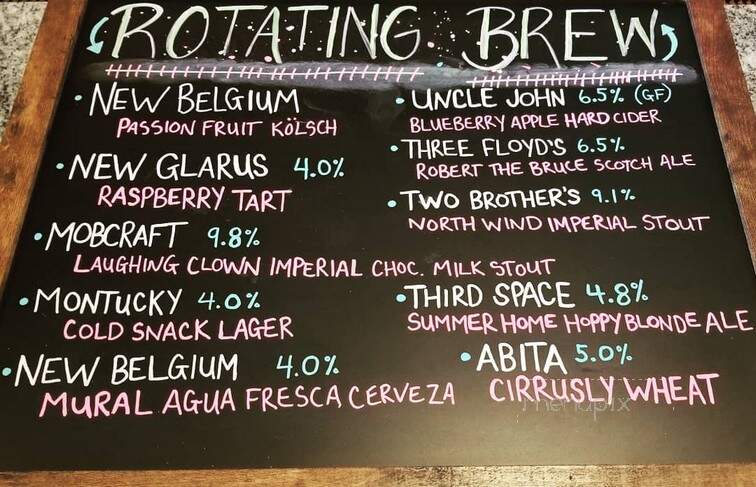 ROTATING BREWS
• NEW BELGIUM
PASSION FRUIT KÖLSCH
• NEW GLARUS 4.0%
RASPBERRY TART
• MOBCRAFT 9.8%
LAUGHING CLOWN IMPERIAL CHOC. MILK STOUT
• MONTUCKY 4.0%
COLD SNACK LAGER
• NEW BELGIUM 4.0%
MURAL AGUA FRESCA CERVEZA
• UNCLE JOHN 6.5% (GF)
BLUEBERRY APPLE HARD CIDER
• THREE FLOYD'S 6.5%
ROBERT THE BRUCE SCOTCH ALE
• TWO BROTHER'S 9.1%
NORTH WIND IMPERIAL STOUT
• THIRD SPACE 4.8%
SUMMER HOME HOPPY BLONDE ALE
• ABITA 5.0%
CIRRUSLY WHEAT
menupix